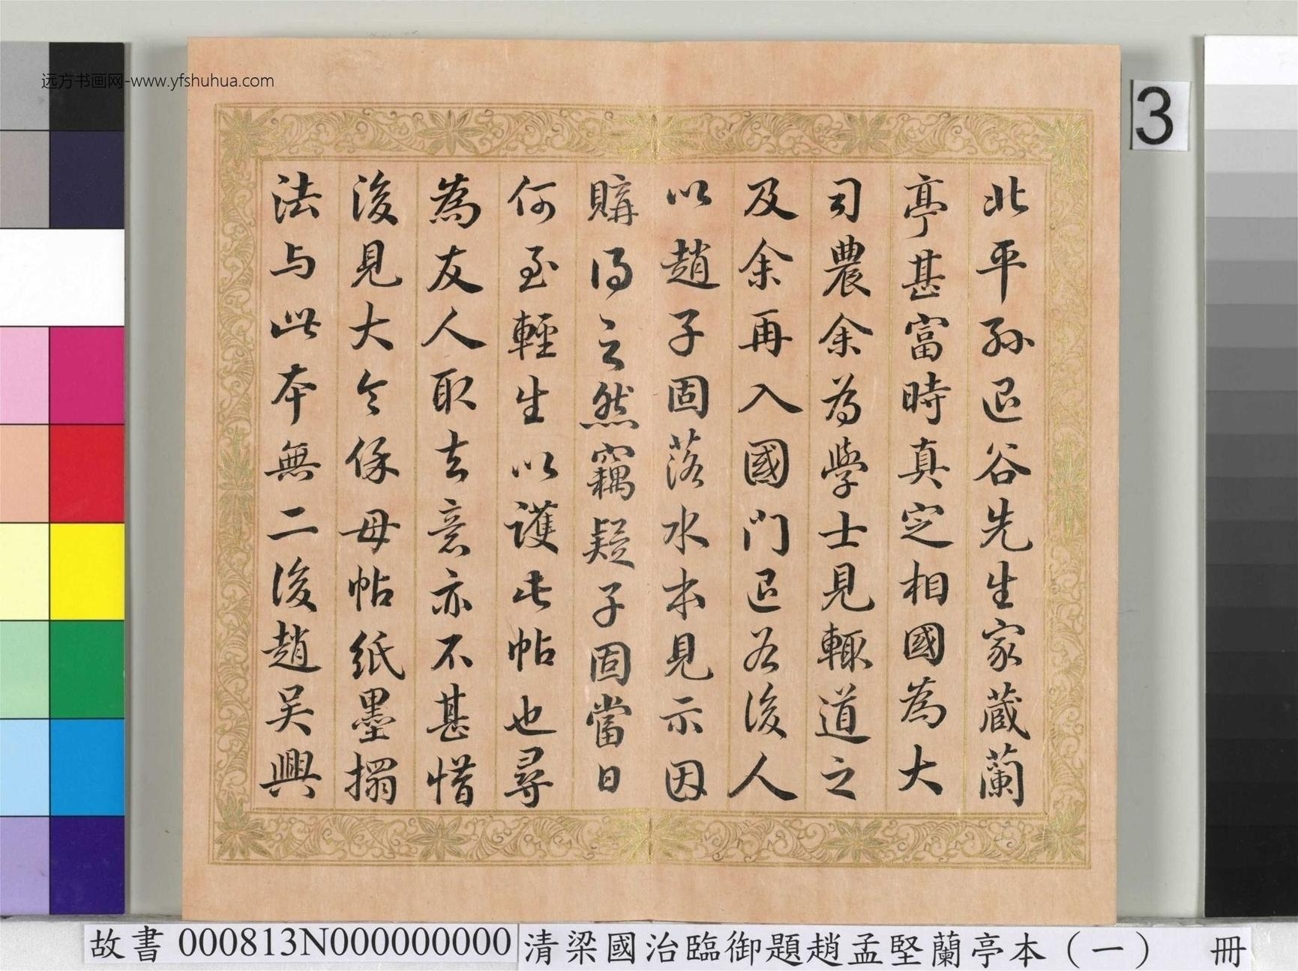 远方书画网-www.yfshuhua.com
3
北平孫退谷先生家藏蘭
亭甚富時真定相國為大
司農余為學士見輒道之
及余再入國门退谷後人
以趙子固落水本見示因
購得之然竊疑子固當日
何至輕生以護此帖也尋
為友人取去意亦不甚惜
後見大令保母帖紙墨搨
法与此本無二後趙吴興
故書 000813N000000000 清梁國治臨御題趙孟堅蘭亭本（一） 冊